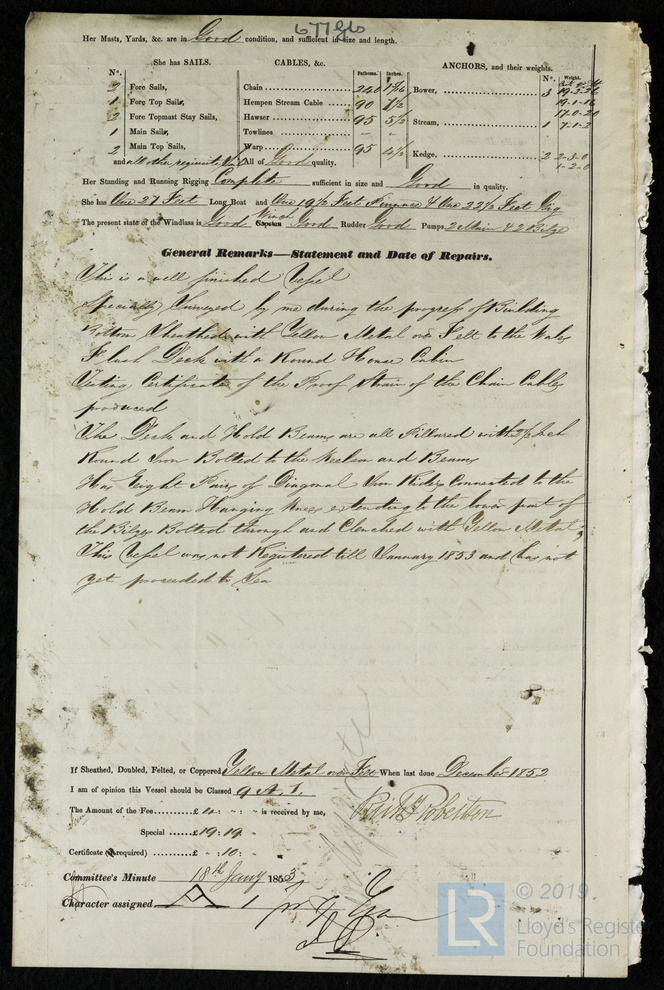 677 Gls
Her Masts, Yards, &c. are in Good condition, and sufficient in size and length.
She has SAILS. CABLES, &c. ANCHORS, and their weights.
N°. Fathoms. Inches. N°. Weight.
2 Fore Sails, Chain 240 Bower, 3 19-3-26
1 Fore Top Sails, Hempen Stream Cable 90 7½ 19-1-16
2 Fore Topmast Stay Sails, Hawser 95 5½ 17-0-20
1 Main Sails, Towlines - - Stream, 1 7-1-2
2 Main Top Sails, Warp 95 4½ Kedge, 2 2-3-0
and all other requisite All of Good quality. 1-2-0
Her Standing and Running Rigging Complete sufficient in size and Good in quality.
She has One 27 Feet Long Boat and One 19½ Feet Pinnace & One 22½ Feet Gig
The present state of the Windlass is Good Capstan Winch Good Rudder Good Pumps 2 Main & 2 Bilge
General Remarks—Statement and Date of Repairs.
This is a well finished Vessel
Specially Surveyed by me during the progress of Building
Bottom Sheathed with Yellow Metal over Felt to the Wales
Flush Deck with a Round House Cabin
Testing Certificate of the Proof Strain of the Chain Cables
produced
The Deck and Hold Beams are all Pillared with 2½ Inch
Round Iron Bolted to the Keelson and Beams
Has Eight Pairs of Diagonal Iron Riders Connected to the
Hold Beam Hanging Knees extending to the lower part of
the Bilges Bolted through and Clenched with Yellow Metal,
This Vessel was not Registered till January 1853 and has not
yet proceeded to Sea
If Sheathed, Doubled, Felted, or Coppered Yellow Metal over Felt When last done December 1852
I am of opinion this Vessel should be Classed 9 A 1.
The Amount of the Fee......£4 : - : - is received by me,
Special ......£19 : 19 : -
Certificate (if required) ......£ - : 10 : -
Robertson
Committee's Minute 18th Jany 1853
Character assigned A 1
LR
© 2019
Lloyd's Register
Foundation